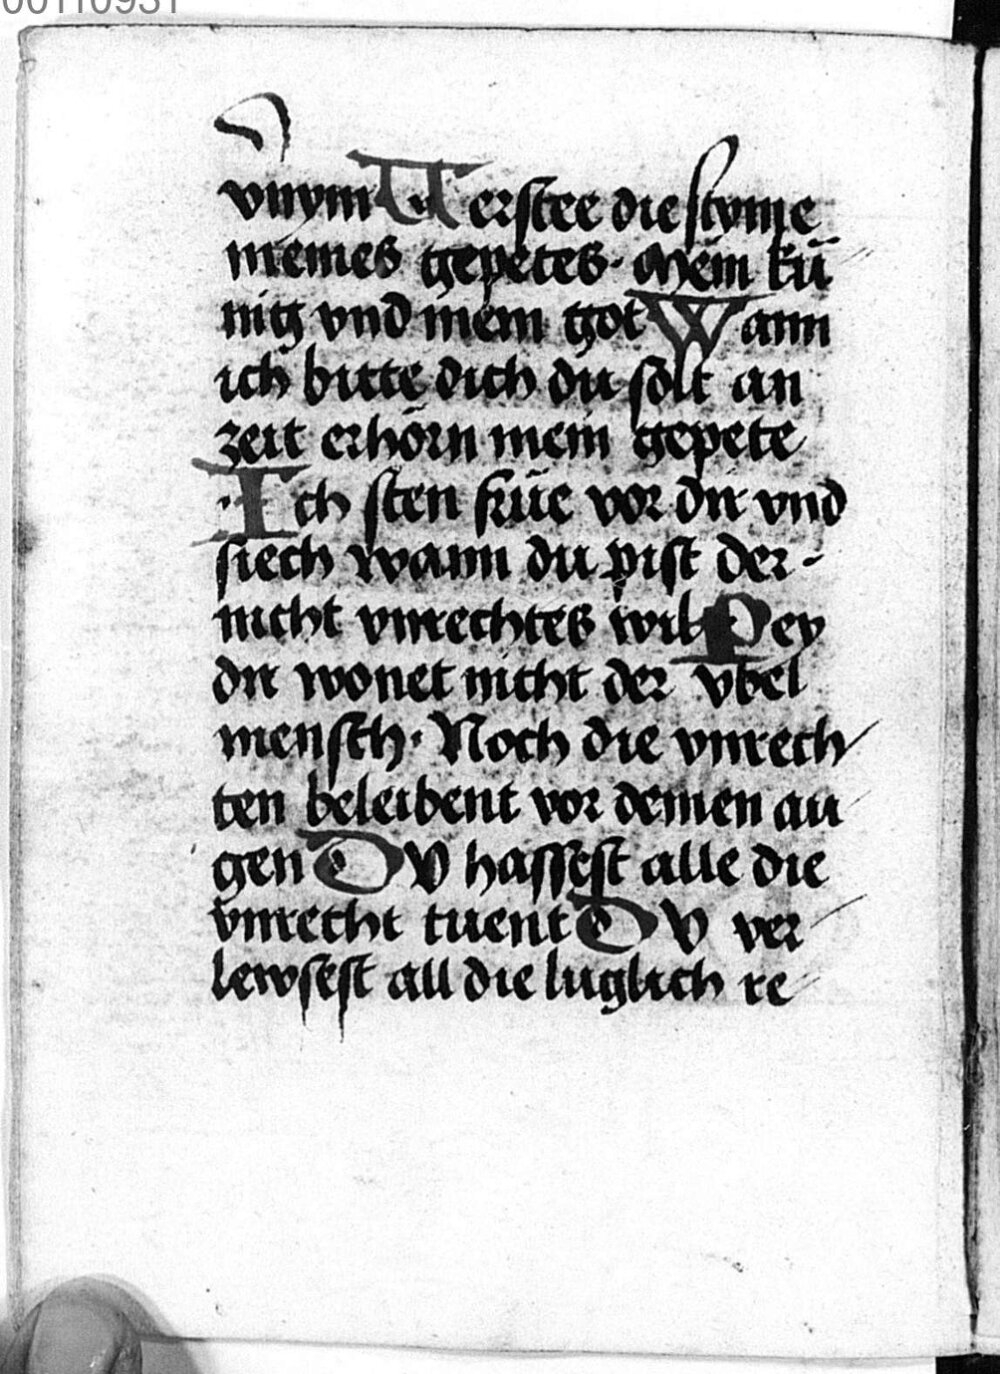 00110931
vnym Verstee die stym̄e
meines gepetes · Mein kü
nig vnd mein got Wann
ich bitte dich du solt an
zeit erhörn mein gepete
· Ich sten früe vor dir vnd
siech wann du pist der
nicht vnrechtes wil Pey
dir wonet nicht der vbel
mensch · Noch die vnrech
ten beleibent vor deinen au
gen DV hassest alle die
vnrecht tuent DV ver
lewsest all die luglich re